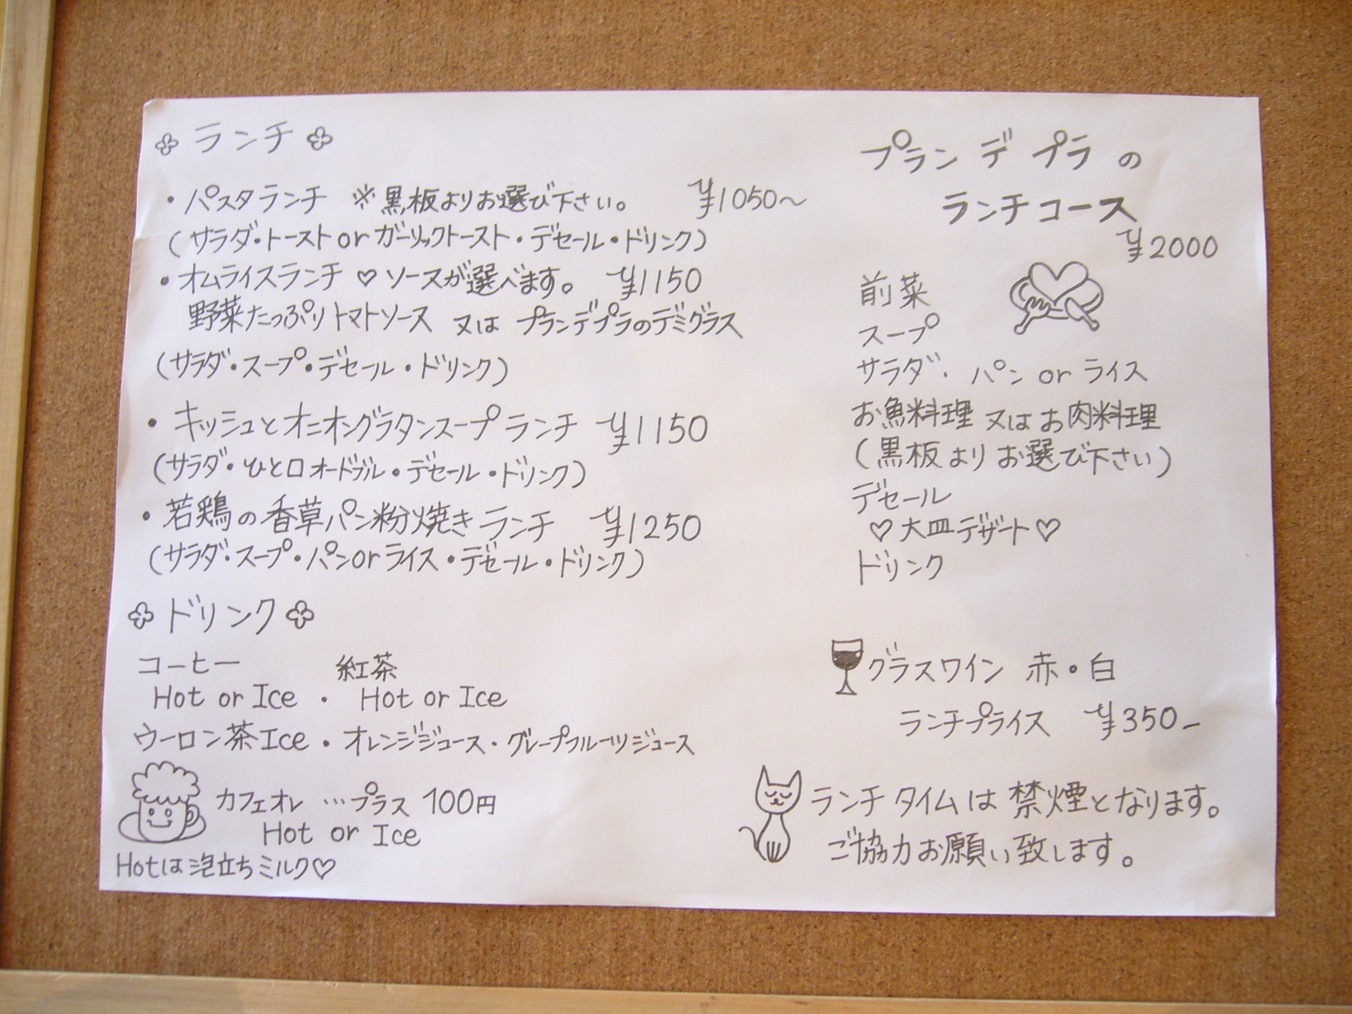 ランチ
・パスタランチ ※黒板よりお選び下さい。 ¥1050〜
(サラダ・トーストorガーリックトースト・デセール・ドリンク)
・オムライスランチ ♡ ソースが選べます。 ¥1150
野菜たっぷりトマトソース 又は プランデプラのデミグラス
(サラダ・スープ・デセール・ドリンク)
・キッシュとオニオングラタンスープランチ ¥1150
(サラダ・ひと口オードブル・デセール・ドリンク)
・若鶏の香草パン粉焼きランチ ¥1250
(サラダ・スープ・パンorライス・デセール・ドリンク)
ドリンク
コーヒー 紅茶
Hot or Ice ・ Hot or Ice
ウーロン茶Ice・オレンジジュース・グレープフルーツジュース
カフェオレ …プラス 100円
Hot or Ice
Hotは泡立ちミルク♡
プラン デ プラ の
ランチコース
¥2000
前菜
スープ
サラダ・パン or ライス
お魚料理 又はお肉料理
(黒板よりお選び下さい)
デセール
♡大皿デザート♡
ドリンク
グラスワイン 赤・白
ランチプライス ¥350-
ランチタイムは禁煙となります。
ご協力お願い致します。